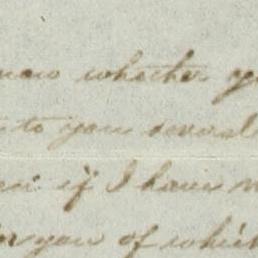 now whether yo
to you several
if I have n
you of which